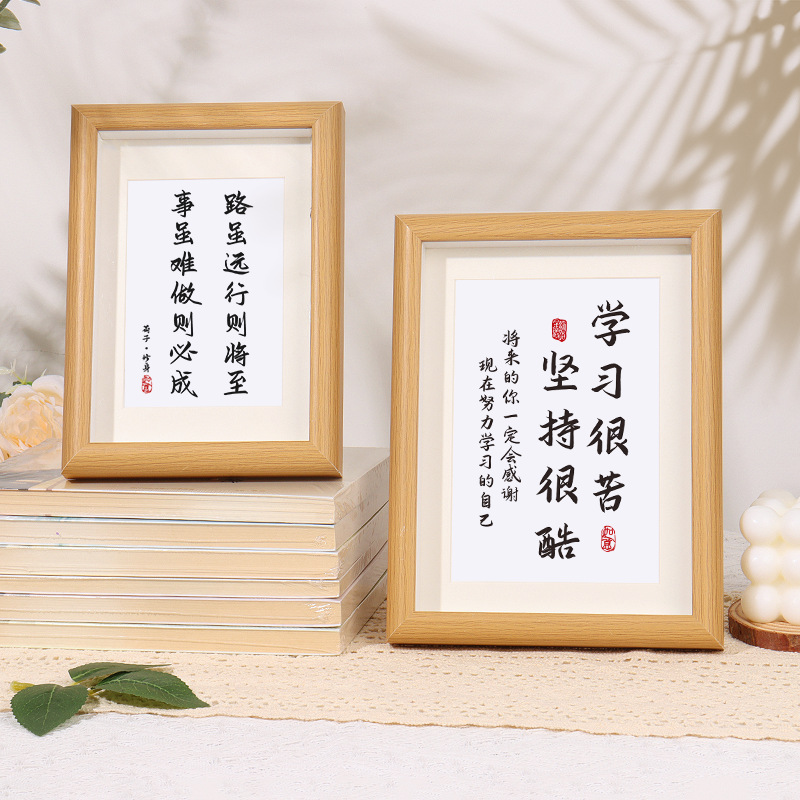 路虽远行则将至
事虽难做则必成
荀子·修身
学习很苦
坚持很酷
将来的你一定会感谢
现在努力学习的自己